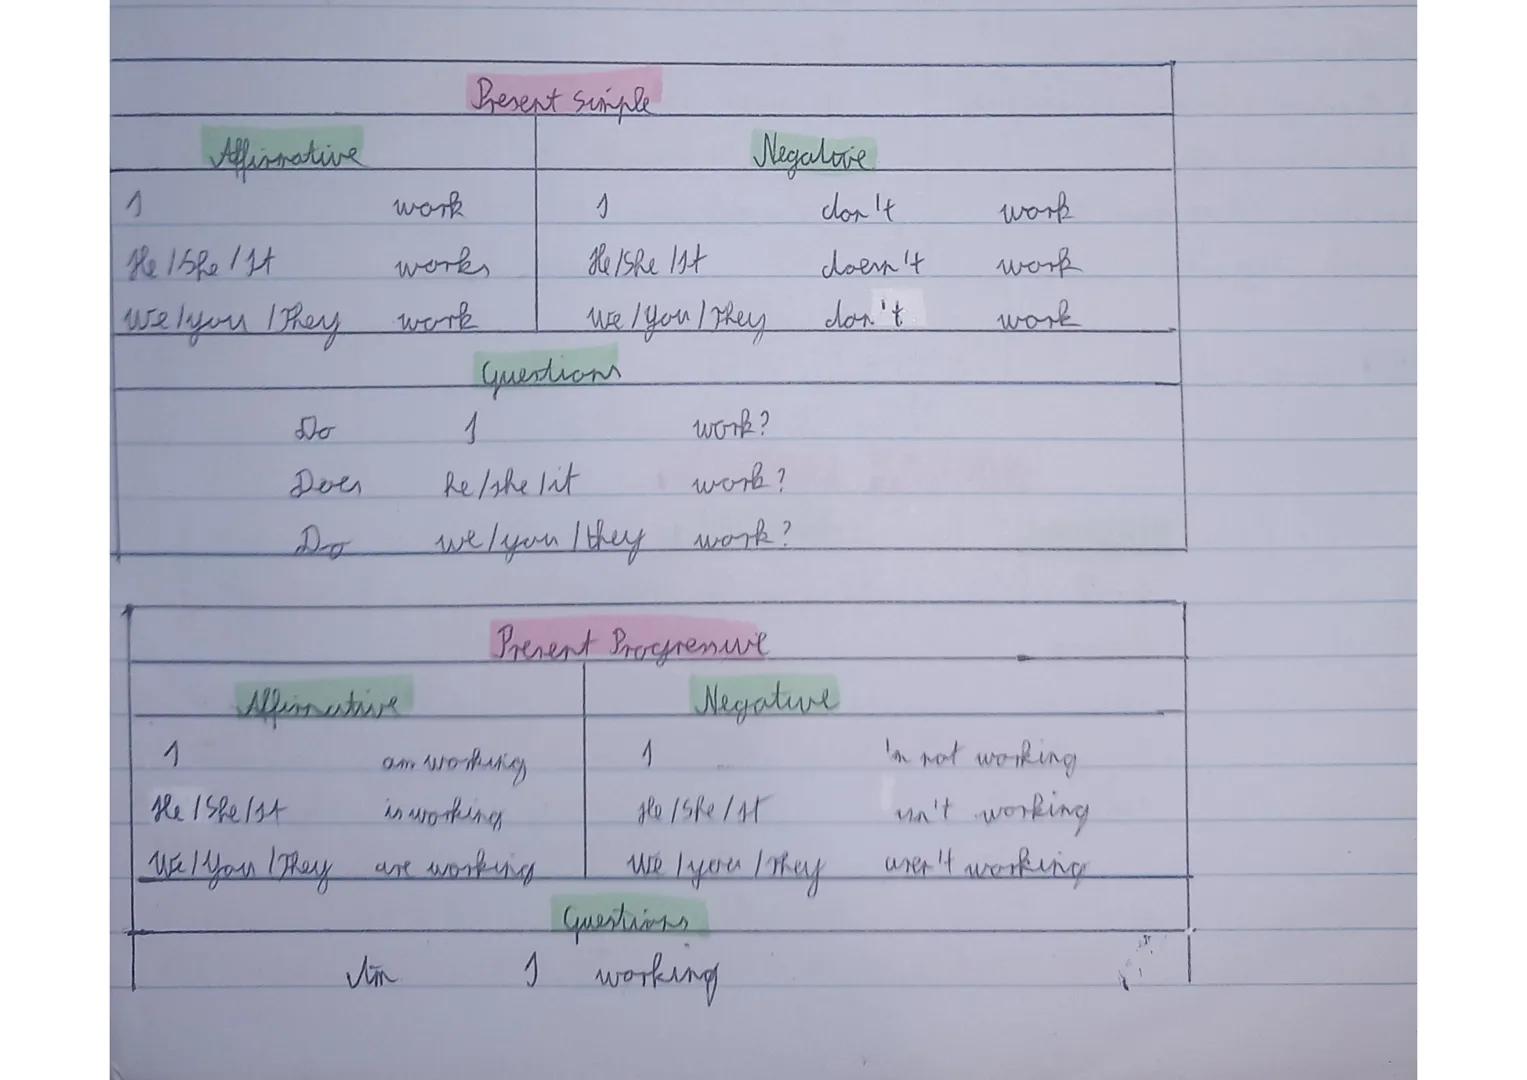 Present Simple
Affirmative Negative
I work I don't work
He/She/It works He/She/It doesn't work
We/you/They work We/You/They don't work
Questions
Do I work?
Does he/she/it work?
Do we/you/they work?
Present Progressive
Affirmative Negative
I am working I 'm not working
He/She/It is working He/She/It isn't working
We/You/They are working We/you/They aren't working
Questions
Am I working